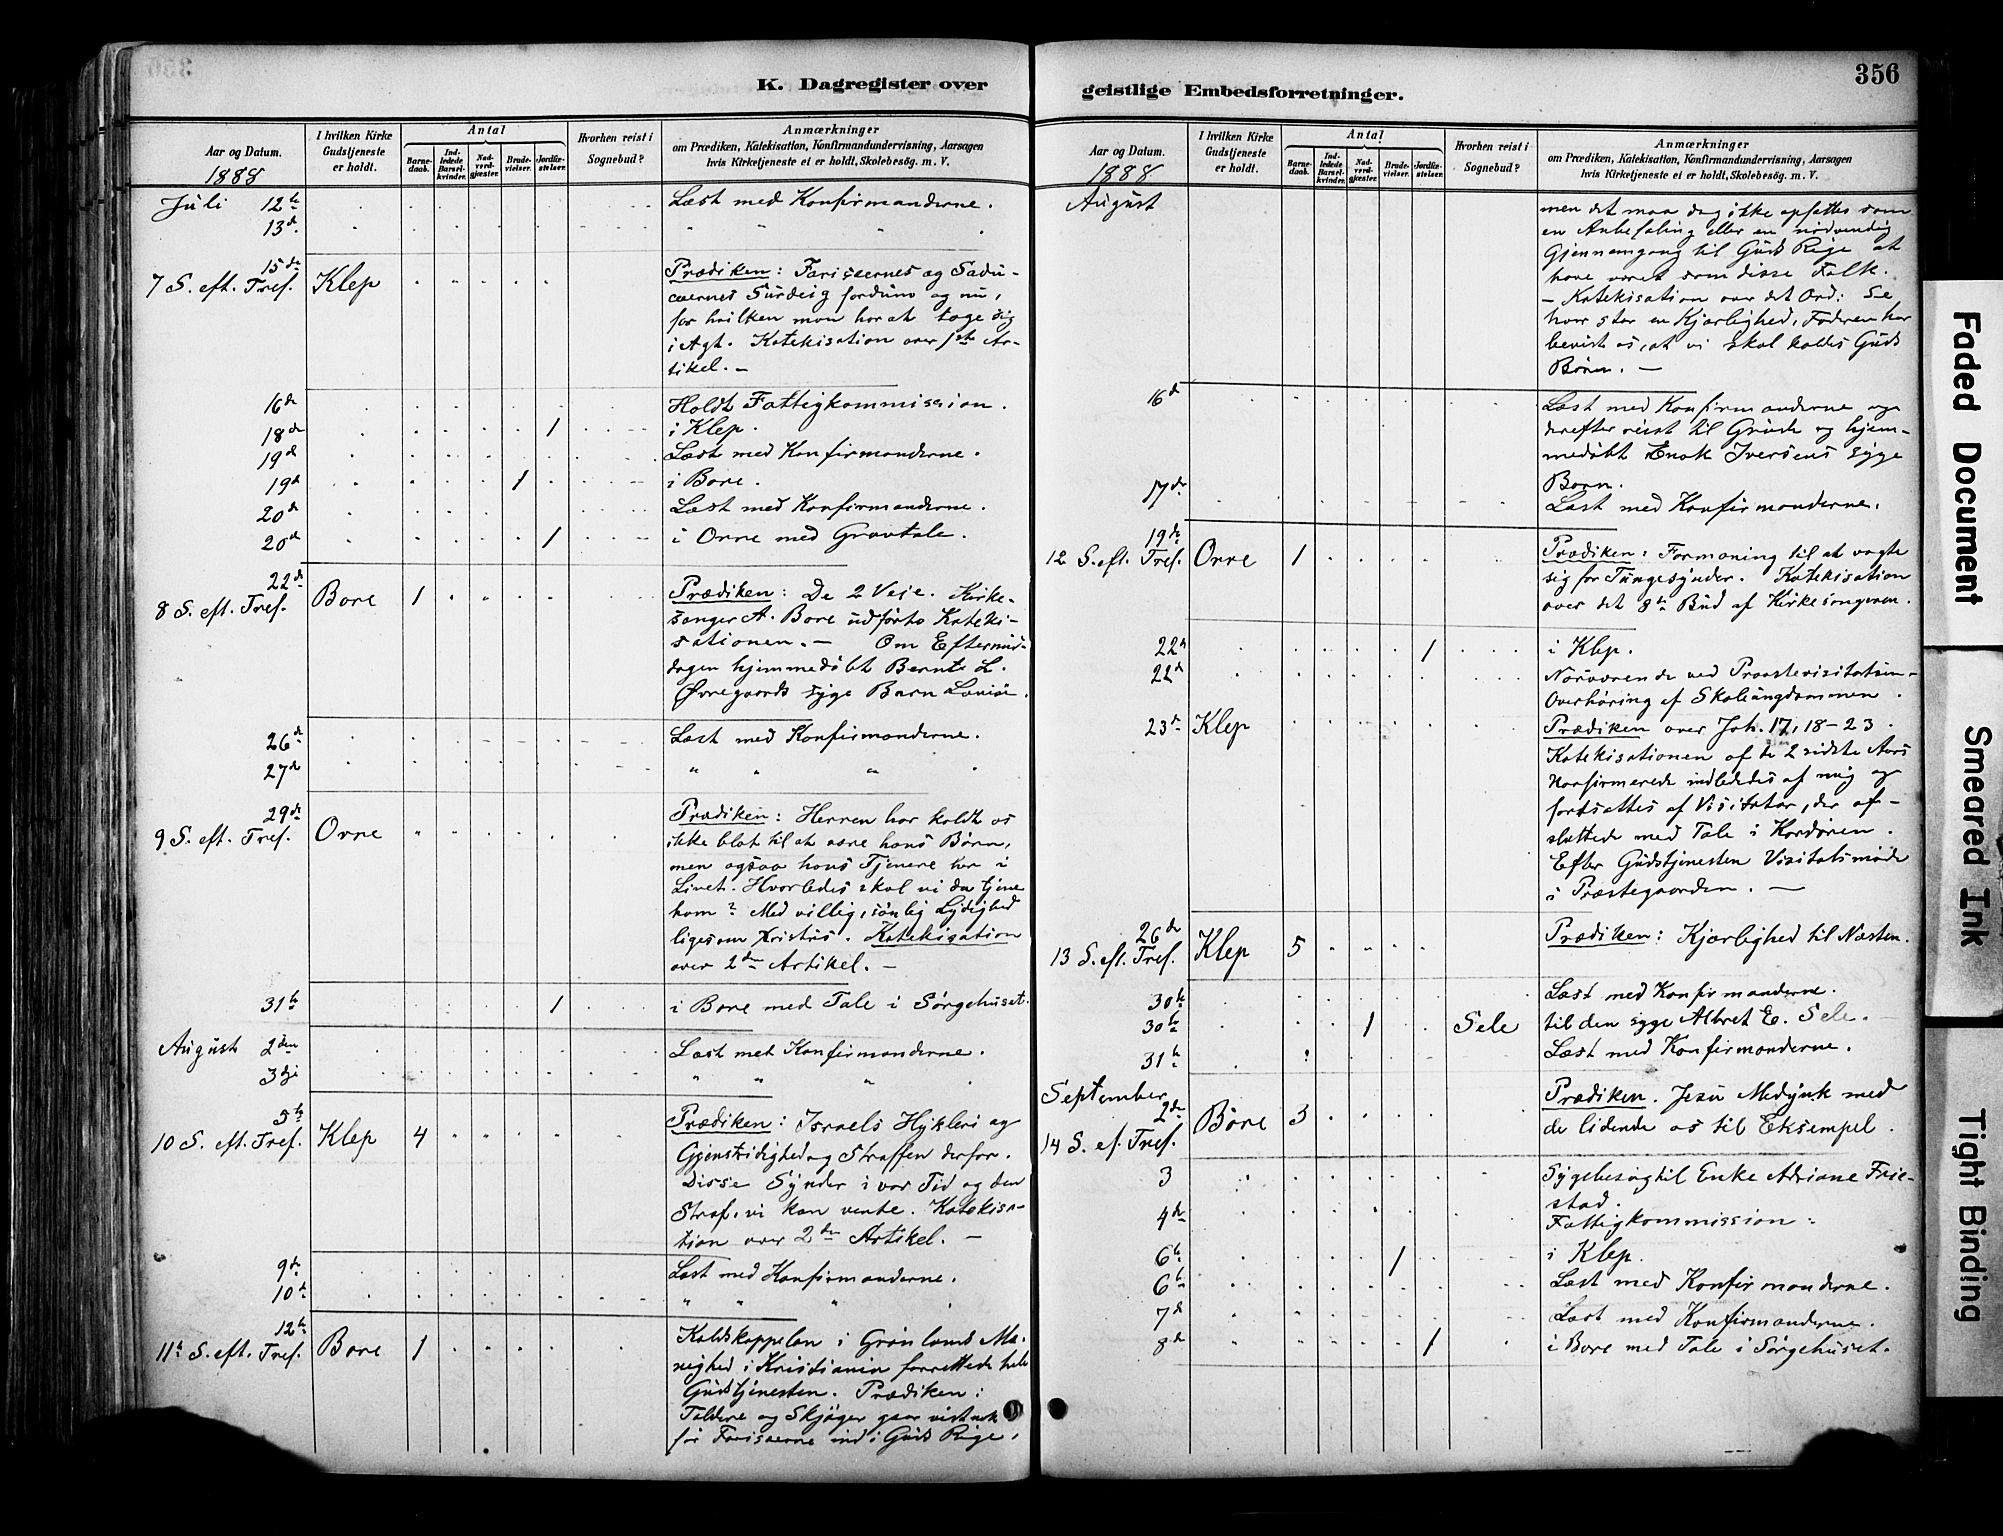 356
K. Dagregister over
geistlige Embedsforretninger.
Aar og Datum.
1888
I hvilken Kirke
Gudstjeneste
er holdt.
Antal
Barne-
daab.
Ind-
ledede
Barsel-
kvinder.
Nad-
verd-
gjæster.
Brude-
vielser.
Jordfæ-
stelser.
Hvorhen reist i
Sognebud?
Anmærkninger
om Prædiken, Katekisation, Konfirmandundervisning, Aarsagen
hvis Kirketjeneste ei er holdt, Skolebesög. m. V.
Juli 12te Læst med Konfirmanderne.
13de " " " "
15de
7 S. eft. Tref. Klep Prædiken: Farisæernes og Sadu-
cæernes Surdeig fordum og nu,
for hvilken man har at tage sig
i Agt. Katekisation over 1ste Ar-
tikel. —
16de Holdt Fattigkommission.
18de 1 i Klep.
19de Læst med Konfirmanderne.
19de 1 i Bore.
20de Læst med Konfirmanderne.
20de 1 i Orre med Gravtale.
22de
8 S. eft. Tref. Bore 1 Prædiken: De 2 Veie. Kirke-
sanger A. Bore udførte Kateki-
sationen. — Om Eftermid-
dagen hjemmedøbt Bernt L.
Øvregaards syge Barn Lovise.
26de Læst med Konfirmanderne.
27de " " " "
29de
9 S. eft. Tref. Orre Prædiken: Herren har kaldt os
ikke blot til at være hans Børn,
men ogsaa hans Tjenere her i
Livet. Hvorledes skal vi da tjene
ham? Med villig, sønlig Lydighed
ligesom Kristus. Katekisation
over 2den Artikel. —
31te 1 i Bore med Tale i Sørgehuset.
August 2den Læst met Konfirmanderne.
3dje " " " "
5te
10 S. eft. Tref. Klep 4 Prædiken: Israels Hykleri og
Gjenstridighed og Straffen derfor.
Disse Synder i vor Tid og den
Straf, vi kan vente. Katekisa-
tion over 2den Artikel. —
9de Læst med Konfirmanderne.
10de " " " "
12te
11te S. eft. Tref. Bore 1 Kaldskappelan i Grønlands Me-
nighed i Kristiania forrettede hele
Gudstjenesten. Prædiken:
Toldere og Skjøger gaar vist nok
før Farisæerne ind i Guds Rige,
Aar og Datum.
1888
I hvilken Kirke
Gudstjeneste
er holdt.
Antal
Barne-
daab.
Ind-
ledede
Barsel-
kvinder.
Nad-
verd-
gjæster.
Brude-
vielser.
Jordfæ-
stelser.
Hvorhen reist i
Sognebud?
Anmærkninger
om Prædiken, Katekisation, Konfirmandundervisning, Aarsagen
hvis Kirketjeneste ei er holdt, Skolebesög. m. V.
August men det maa dog ikke opfattes som
en Anbefaling eller en nødvendig
Gjennemgang til Guds Rige at
have været som disse Folk.
— Katekisation over det Ord: Se
hvor stor en Kjærlighed, Faderen har
bevist os, at vi skal kaldes Guds
Børn. —
16de Læst med Konfirmanderne og
derefter reist til Grude og hjem-
medøbt Enok Iversens syge
Barn.
17de Læst med Konfirmanderne.
19de
12 S. eft. Tref. Orre 1 Prædiken: Formaning til at vogte
sig for Tungesynder. Katekisation
over det 8te Bud af Kirkesangeren.
22de 1 i Klep.
22de Nærværende ved Provstevisitatsen —
Overhøring af Skoleungdommen.
23de Klep Prædiken over Joh. 17, 18-23.
Katekisationen af de 2 sidste Aars
Konfirmerede indlededes af mig og
fortsattes af Visitator, der af-
sluttede med Tale i Kordøren.
Efter Gudstjenesten Visitatsmøde
i Præstegaarden. —
26de
13 S. eft. Tref. Klep 5 Prædiken: Kjærlighed til Næsten.
30te Læst med Konfirmanderne.
30te 1 Sele til den syge Albret E. Sele.
31te Læst med Konfirmanderne.
September
2den
14 S. ef. Tref. Bore 3 Prædiken. Jesu Medynk med
de lidende os til Eksempel.
3 Sygebesøg til Enke Adriane Frie-
stad.
4de Fattigkommission.
6te 1 i Klep.
6te Læst med Konfirmanderne.
7de Læst med Konfirmanderne.
8de 1 i Bore med Tale i Sørgehuset.
Faded Document
Smeared Ink
Tight Binding